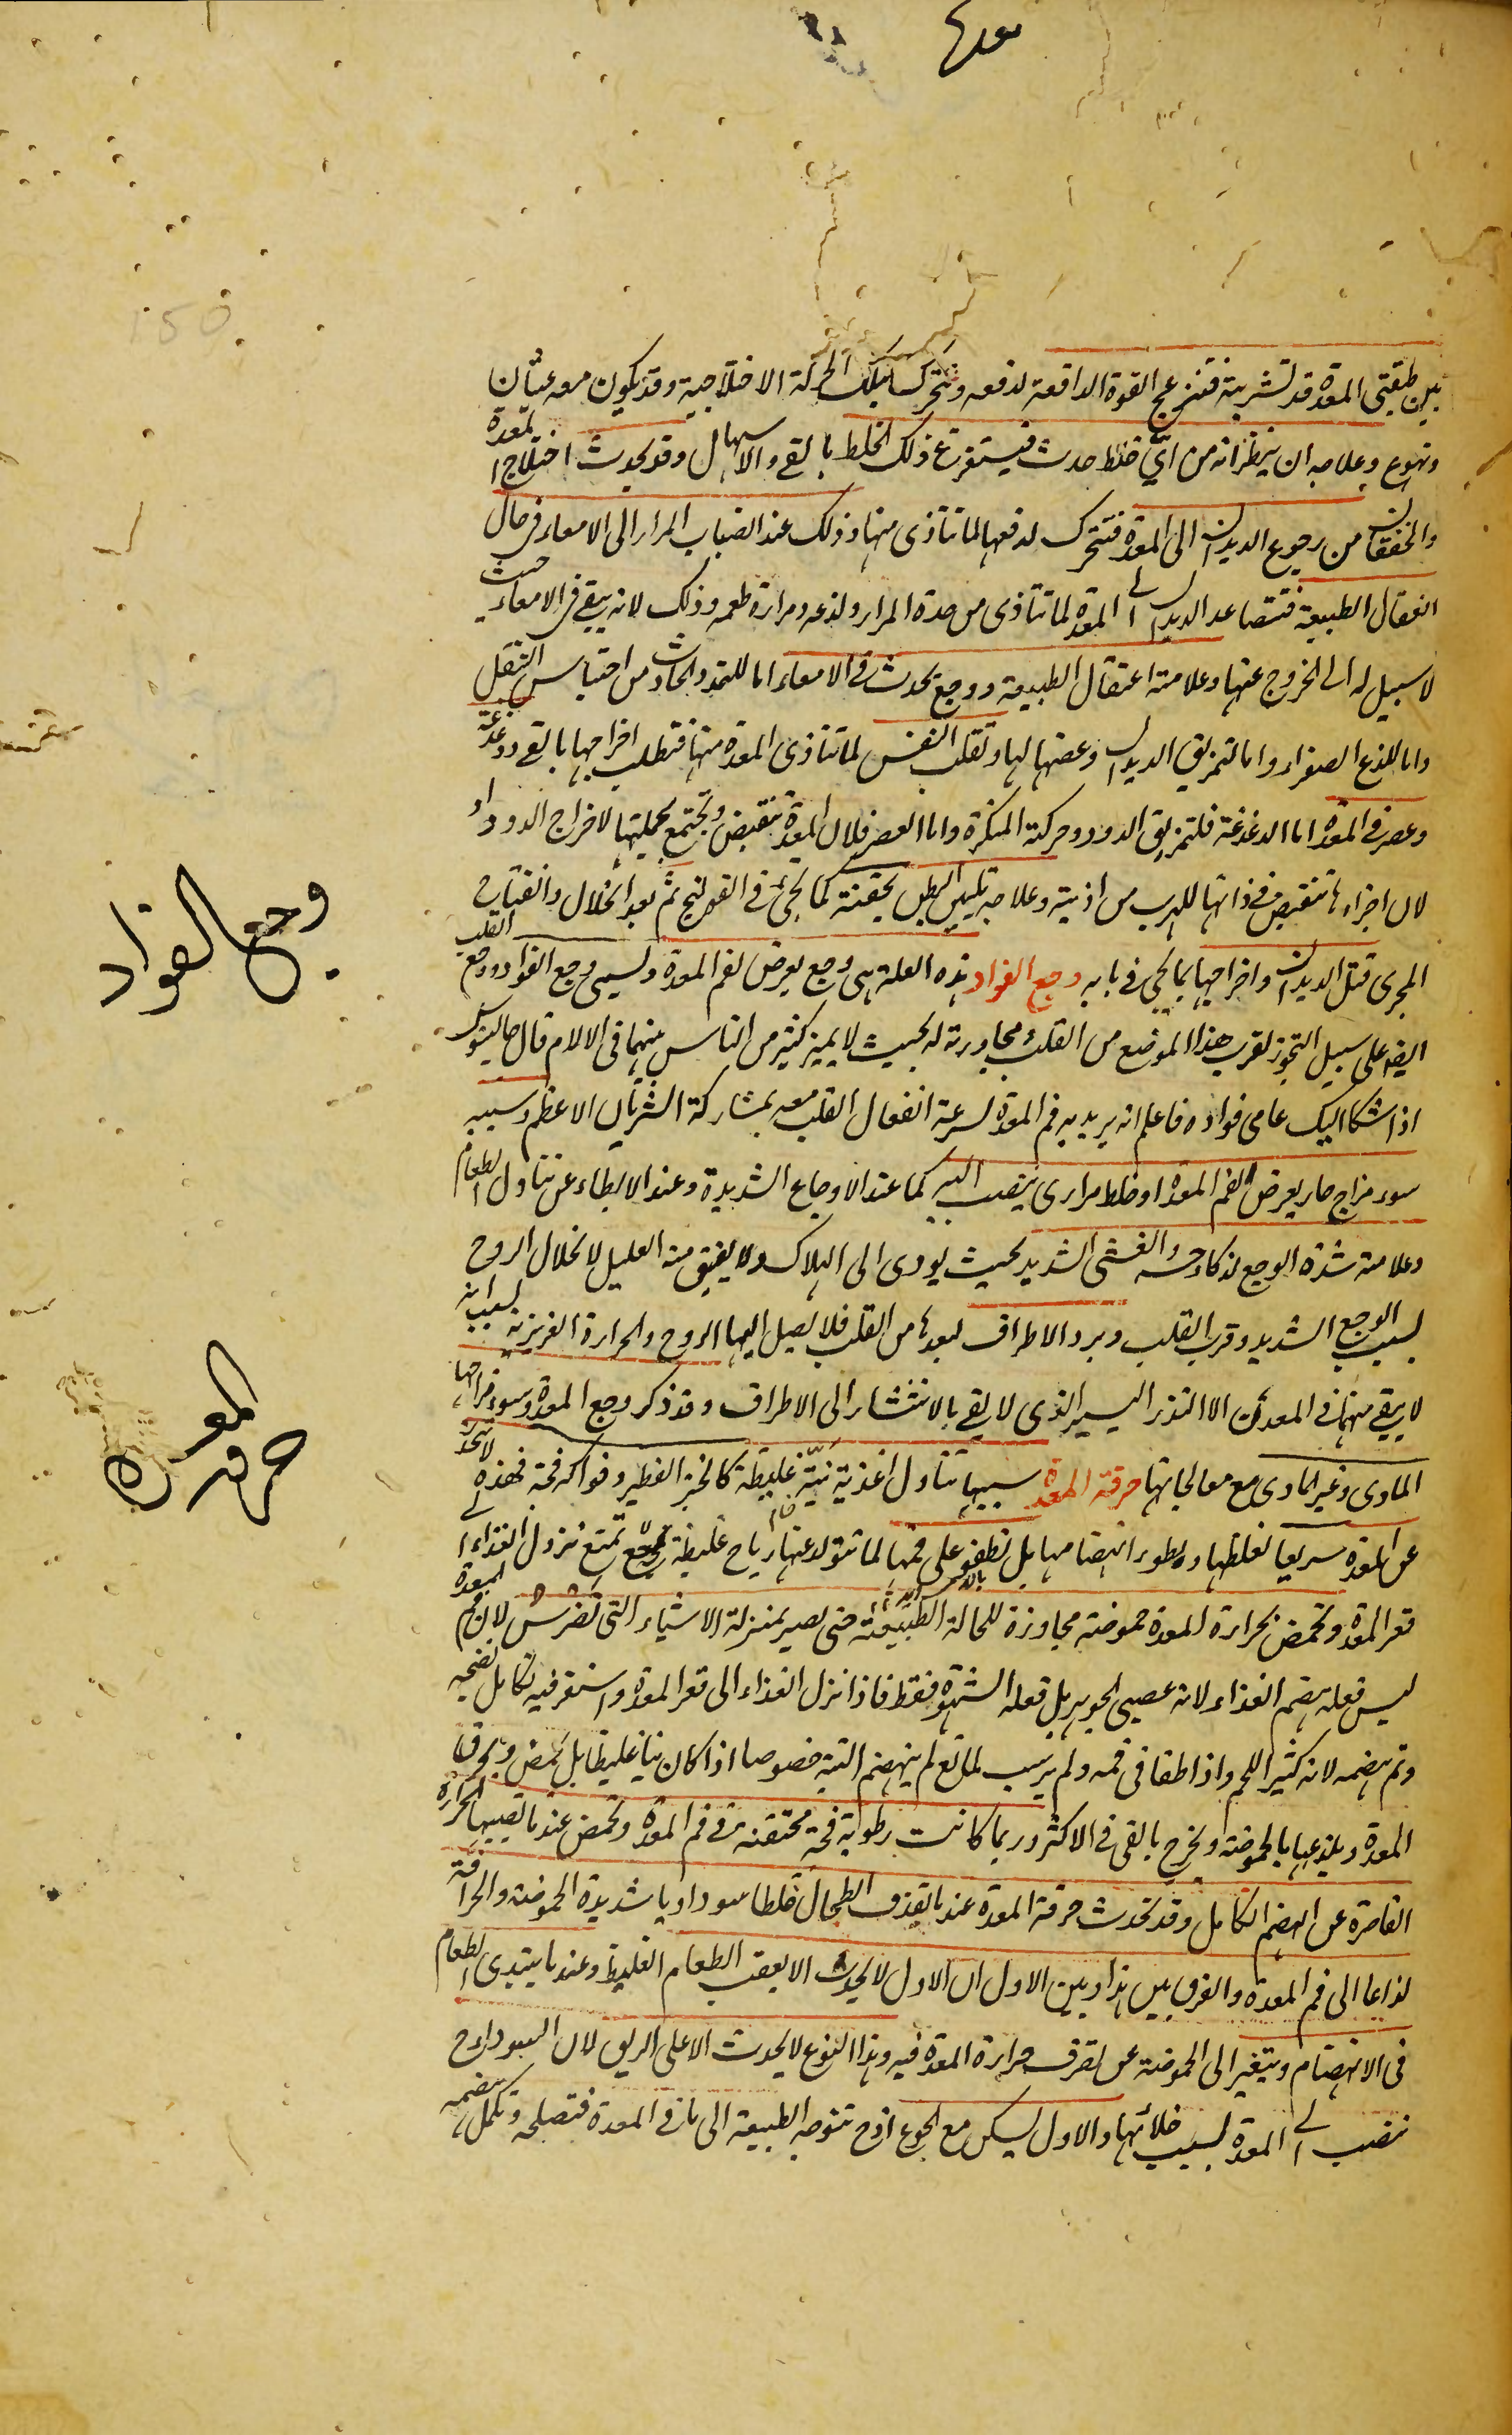 بين طبقتي المعدة قد تشربته فتنزعج القوة الدافعة لدفعه وتتحرك تلك الحركة الاختلاجية وقد يكون معه غثيان
وتهوع وعلاجه ان ينظر انه من اي خلط حدث فيستفرغ ذلك الخلط بالقي والاسهال وقد يحدث اختلاج المعدة
والخفقان من رجوع الديدان الى المعدة فتتحرك لدفعها لما تتاذى منها وذلك عند انصباب المرار الى الامعاء في حال
اعتقال الطبيعة فتتصاعد الديدان الى المعدة لما تتاذى من حدة المرار ولذعه ومرارة طعمه وذلك لانه يبقى في الامعاء حيث
لا سبيل له الى الخروج عنها وعلامته اعتقال الطبيعة ووجع يحدث في الامعاء اما للتمدد الحادث من احتباس الثفل
واما للذع الصفراء واما لتمزيق الديدان وعضها لها وتقلب النفس لما تتاذى المعدة منها فتطلب اخراجها بالقي ودغدغة
وعصر في المعدة اما الدغدغة فلتمزيق الدود وحركته المنكرة واما العصر فلان المعدة تنقبض وتجتمع بجملتها لاخراج الدود او
لان اجزاءها تنقبض في ذاتها للهرب من اذيته وعلاجه تليين البطن بحقنة كما يجيء في القولنج ثم بعد انحلال وانفتاح
المجرى قتل الديدان واخراجها بما يجي في بابه وجع الفواد هذه العلة هي وجع يعرض لفم المعدة ويسمى وجع الفواد ووجع القلب
ايضا على سبيل التجوز لقرب هذا الموضع من القلب ومجاورته له بحيث لا يميز كثير من الناس بينهما في الالام قال جالينوس
اذا شكا اليك عامي فواده فاعلم انه يريد به فم المعدة لسرعة انفعال القلب معه بمشاركة الشريان الاعظم وسببه
سوء مزاج حار يعرض لفم المعدة او خلط مراري ينصب اليه كما عند الاوجاع الشديدة وعند الابطاء عن تناول الطعام
وعلامته شدة الوجع لذكاء حسه والغشي الشديد بحيث يودي الى الهلاك ولا يفيق منه العليل لانحلال الروح
بسبب الوجع الشديد وقرب القلب وبرد الاطراف لبعدها من القلب فلا يصل اليها الروح والحرارة الغريزية بسبب انه
لا يبقى منهما في المعدن الا النذر اليسير الذي لا يفي بالانتشار الى الاطراف وقد ذكر وجع المعدة وسوء مزاجها
المادي وغير المادي مع معالجاتها حرقة المعدة سببها تناول اغذية نيّة غليظة كالخبز الفطير وفواكه فجة فهذه لا تنحدر
عن المعدة سريعا لغلظها وبطوء انهضامها بل تطفو على فمها لما تتولد عنها رياح غليظة تمنع نزول الغذاء الى
قعر المعدة وتحمض بحرارة المعدة حموضة مجاوزة للحالة الطبيعية حتى يصير بمنزلة الاشياء التي تضرس لان فم المعدة
ليس فعله هضم الغذاء لانه عصبي الجوهر بل فعله الشهوة فقط فاذا نزل الغذاء الى قعر المعدة واستقر فيه تكامل نضجه
وتم هضمه لانه كثير اللحم واذا طفا في فمه ولم يرسب لمانع لم ينهضم البتة خصوصا اذا كان نيا غليظا بل يحمض ويحرق
المعدة ويلذعها بالحموضة ويخرج بالقي في الاكثر وربما كانت رطوبة فجة محتقنة في فم المعدة وتحمض عندما تصيبها الحرارة
القاصرة عن الهضم الكامل وقد تحدث حرقة المعدة عندما يقذف الطحال خلطا سوداويا شديد الحموضة والحرافة
لذاعا الى فم المعدة والفرق بين هذا وبين الاول ان الاول لا يحدث الا بعقب الطعام الغليظ وعندما يبتدي الطعام
في الانهضام ويتغير الى الحموضة عن تصرف حرارة المعدة فيه وهذا النوع لا يحدث الا على الريق لان السوداء ح
تنصب الى المعدة بسبب خلائها والاول يسكن مع الجوع اذ ح تتوجه الطبيعة الى ما في المعدة فتصلحه وتكمل هضمه
وجع الفواد
حرقه المعده